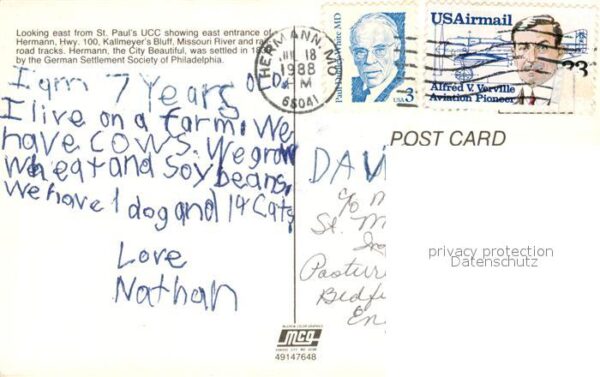 Looking east from St. Paul's UCC showing east entrance of
Hermann, Hwy. 100, Kallmeyer's Bluff, Missouri River and rail
road tracks. Hermann, the City Beautiful, was settled in 183
by the German Settlement Society of Philadelphia.
I am 7 years old
I live on a farm. We
have cows. We grow
wheat and soybeans.
We have 1 dog and 14 cats
Love
Nathan
HERMANN, MO
JUL 18
1988
M
65041
Paul Dudley White MD
USA 3
USAirmail
33
Alfred V. Verville
Aviation Pioneer
POST CARD
DAV
c/o M
St. M
Pastur
Bedf
En
privacy protection
Datenschutz
mcg
49147648